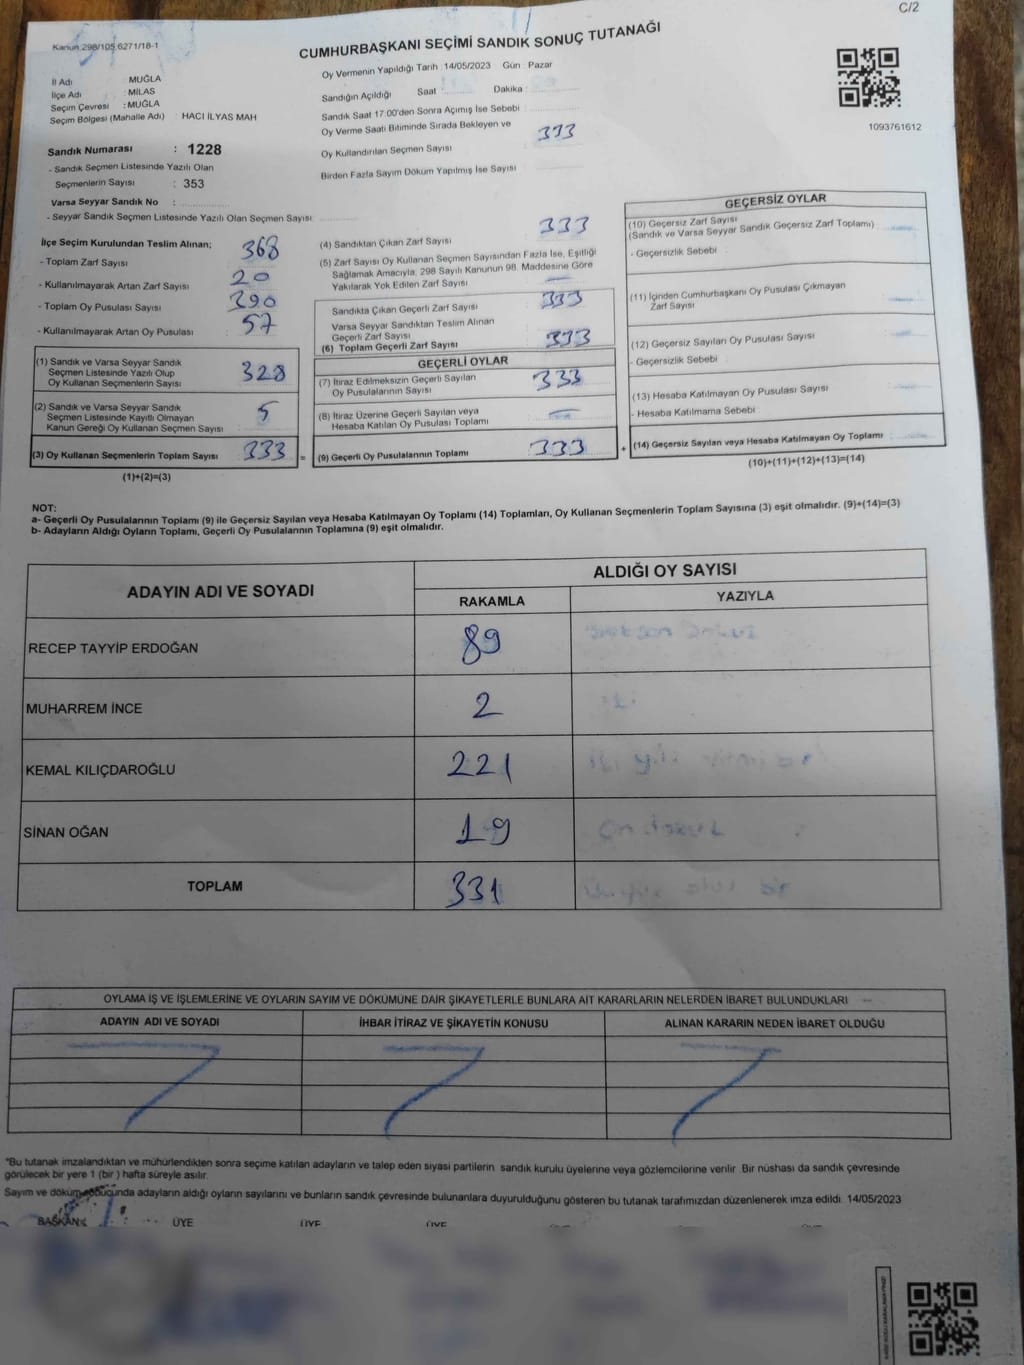 C/2
Kanun 298/105,6271/18-1
CUMHURBAŞKANI SEÇİMİ SANDIK SONUÇ TUTANAĞI
Oy Vermenin Yapıldığı Tarih :14/05/2023 Gün : Pazar
İl Adı : MUĞLA
İlçe Adı : MİLAS
Seçim Çevresi : MUĞLA
Seçim Bölgesi (Mahalle Adı) : HACI İLYAS MAH
Sandığın Açıldığı Saat : Dakika :
Sandık Saat 17:00'den Sonra Açımış İse Sebebi :
Oy Verme Saati Bitiminde Sırada Bekleyen ve
Oy Kullandırılan Seçmen Sayısı : 333
Birden Fazla Sayım Döküm Yapılmış İse Sayısı :
1093761612
Sandık Numarası : 1228
- Sandık Seçmen Listesinde Yazılı Olan
Seçmenlerin Sayısı : 353
Varsa Seyyar Sandık No :
- Seyyar Sandık Seçmen Listesinde Yazılı Olan Seçmen Sayısı
İlçe Seçim Kurulundan Teslim Alınan;
- Toplam Zarf Sayısı : 368
- Kullanılmayarak Artan Zarf Sayısı : 20
- Toplam Oy Pusulası Sayısı : 390
- Kullanılmayarak Artan Oy Pusulası : 57
(1) Sandık ve Varsa Seyyar Sandık
Seçmen Listesinde Yazılı Olup
Oy Kullanan Seçmenlerin Sayısı : 328
(2) Sandık ve Varsa Seyyar Sandık
Seçmen Listesinde Kayıtlı Olmayan
Kanun Gereği Oy Kullanan Seçmen Sayısı : 5
(3) Oy Kullanan Seçmenlerin Toplam Sayısı 333 =
(1)+(2)=(3)
(4) Sandıktan Çıkan Zarf Sayısı 333
(5) Zarf Sayısı Oy Kullanan Seçmen Sayısından Fazla İse, Eşitliği
Sağlamak Amacıyla, 298 Sayılı Kanunun 98. Maddesine Göre
Yakılarak Yok Edilen Zarf Sayısı : —
Sandıkta Çıkan Geçerli Zarf Sayısı : 333
Varsa Seyyar Sandıktan Teslim Alınan
Geçerli Zarf Sayısı
(6) Toplam Geçerli Zarf Sayısı 333
GEÇERLİ OYLAR
(7) İtiraz Edilmeksizin Geçerli Sayılan
Oy Pusulalarının Sayısı : 333
(8) İtiraz Üzerine Geçerli Sayılan veya
Hesaba Katılan Oy Pusulası Toplamı : —
(9) Geçerli Oy Pusulalarının Toplamı : 333 +
GEÇERSİZ OYLAR
(10) Geçersiz Zarf Sayısı
(Sandık ve Varsa Seyyar Sandık Geçersiz Zarf Toplamı) :
- Geçersizlik Sebebi :
(11) İçinden Cumhurbaşkanı Oy Pusulası Çıkmayan
Zarf Sayısı :
(12) Geçersiz Sayılan Oy Pusulası Sayısı :
- Geçersizlik Sebebi :
(13) Hesaba Katılmayan Oy Pusulası Sayısı :
- Hesaba Katılmama Sebebi :
(14) Geçersiz Sayılan veya Hesaba Katılmayan Oy Toplamı :
(10)+(11)+(12)+(13)=(14)
NOT:
a- Geçerli Oy Pusulalarının Toplamı (9) ile Geçersiz Sayılan veya Hesaba Katılmayan Oy Toplamı (14) Toplamları, Oy Kullanan Seçmenlerin Toplam Sayısına (3) eşit olmalıdır. (9)+(14)=(3)
b- Adayların Aldığı Oyların Toplamı, Geçerli Oy Pusulalarının Toplamına (9) eşit olmalıdır.
ADAYIN ADI VE SOYADI ALDIĞI OY SAYISI
RAKAMLA YAZIYLA
RECEP TAYYİP ERDOĞAN 89
MUHARREM İNCE 2
KEMAL KILIÇDAROĞLU 221
SİNAN OĞAN 19
TOPLAM 331
OYLAMA İŞ VE İŞLEMLERİNE VE OYLARIN SAYIM VE DÖKÜMÜNE DAİR ŞİKAYETLERLE BUNLARA AİT KARARLARIN NELERDEN İBARET BULUNDUKLARI
ADAYIN ADI VE SOYADI İHBAR İTİRAZ VE ŞİKAYETİN KONUSU ALINAN KARARIN NEDEN İBARET OLDUĞU
*Bu tutanak imzalandıktan ve mühürlendikten sonra seçime katılan adayların ve talep eden siyasi partilerin sandık kurulu üyelerine veya gözlemcilerine verilir. Bir nüshası da sandık çevresinde
görülecek bir yere 1 (bir ) hafta süreyle asılır.
Sayım ve döküm sonucunda adayların aldığı oyların sayılarını ve bunların sandık çevresinde bulunanlara duyurulduğunu gösteren bu tutanak tarafımızdan düzenlenerek imza edildi. 14/05/2023
BAŞKAN ÜYE ÜYE ÜYE